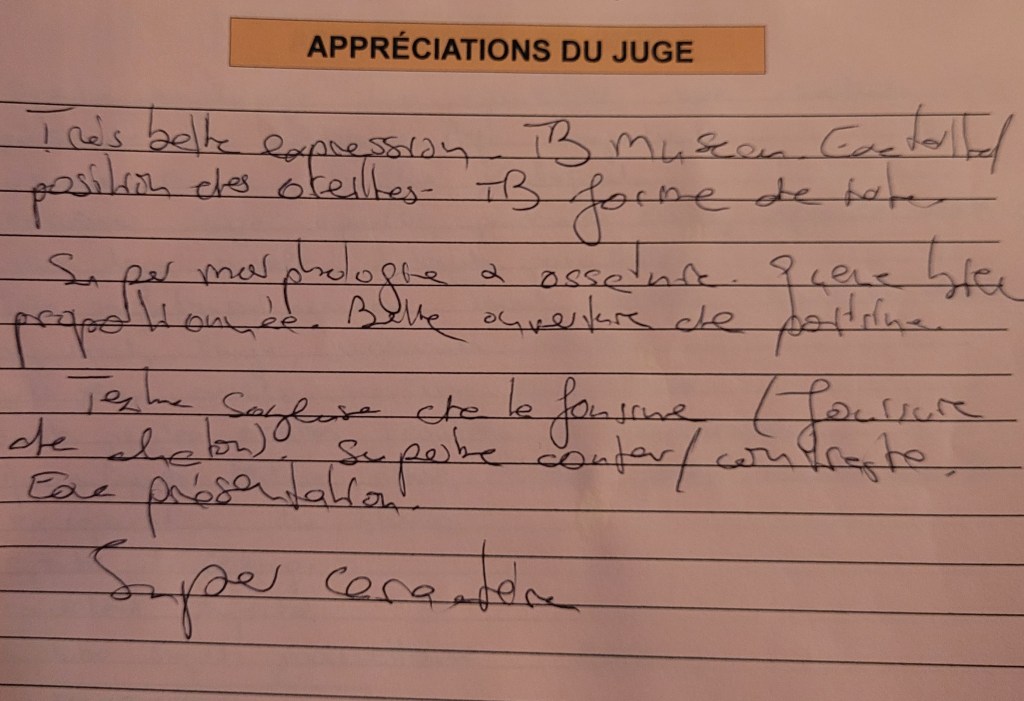 APPRÉCIATIONS DU JUGE
Très belle expression. TB museau. Exc taille/
position des oreilles - TB forme de tête
Super morphologie & ossature. Queue bien
proportionnée. Belle ouverture de poitrine.
Texture soyeuse de la fourrure (fourrure
de chaton). Superbe couleur/contraste.
Exc présentation.
Super caractère